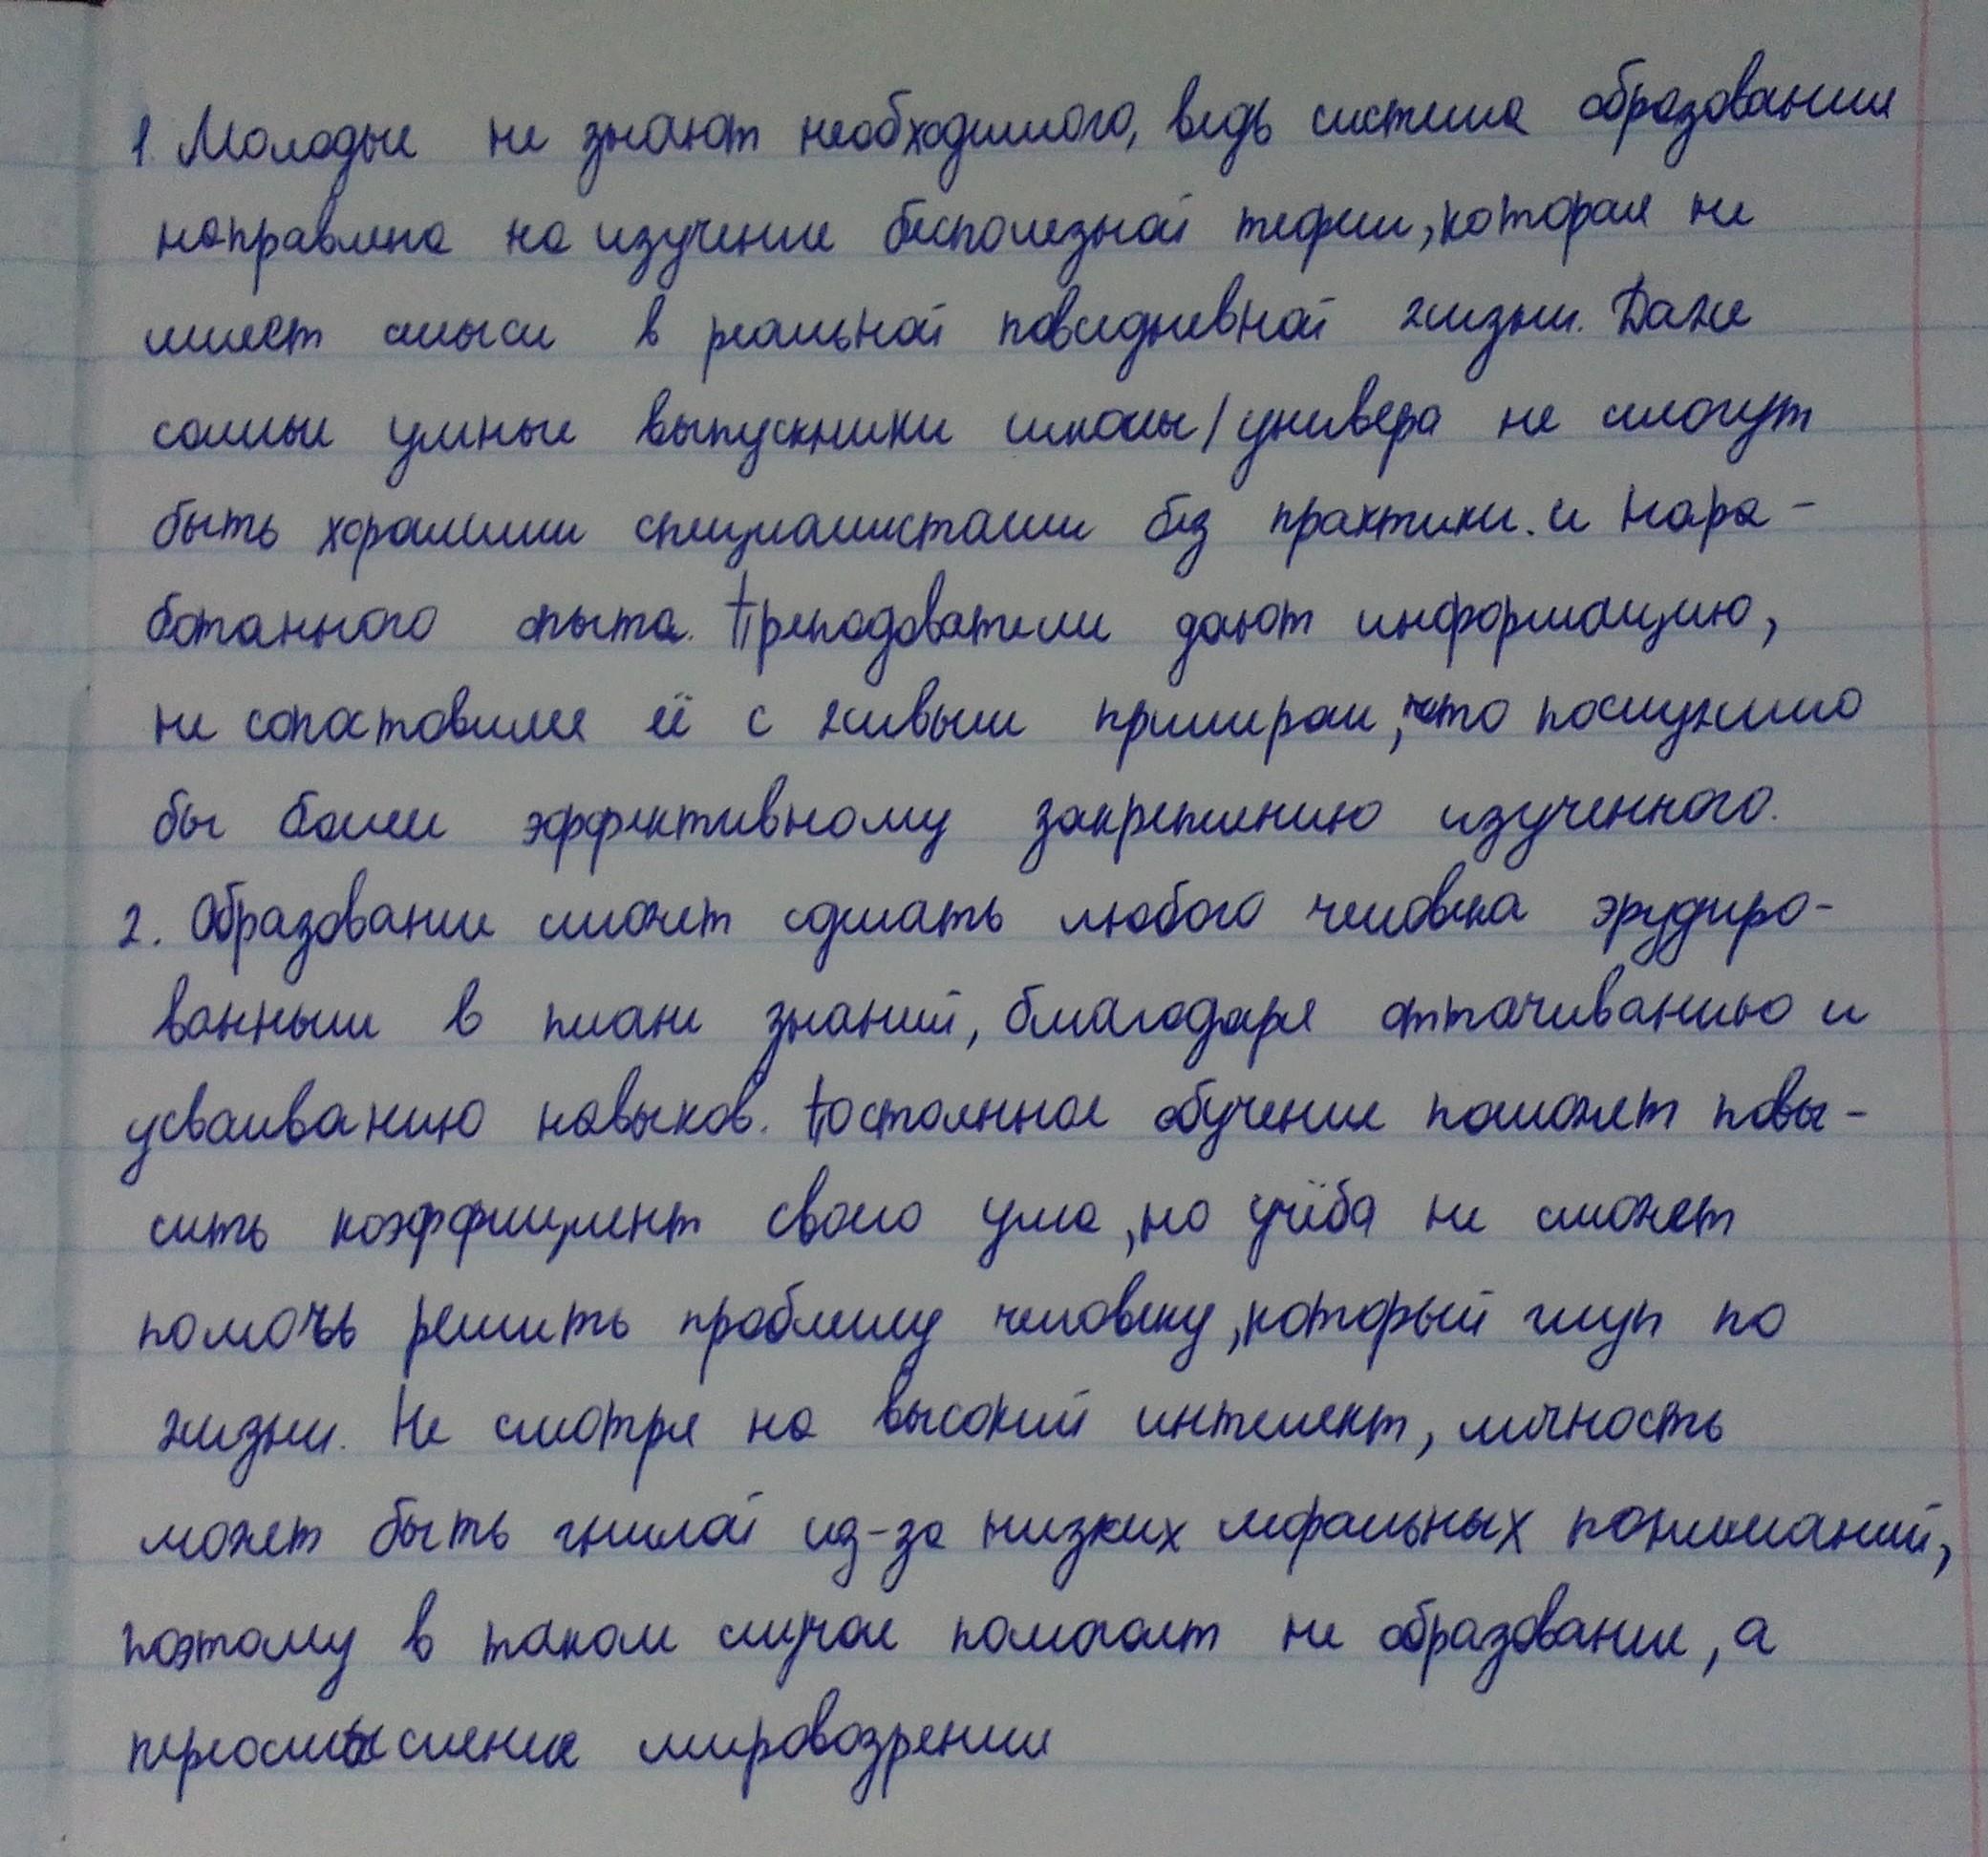 1. Молодые не знают необходимого, ведь система образования
направлена на изучение бесполезной теории, которая не
имеет смысл в реальной повседневной жизни. Даже
самые умные выпускники школы/универа не смогут
быть хорошими специалистами без практики. и нара-
ботанного опыта. Преподаватели дают информацию,
не сопоставляя её с живым примером, что послужило
бы более эффективному закреплению изученного.
2. Образование сможет сделать любого человека эрудиро-
ванным в плане знаний, благодаря оттачиванию и
усваиванию навыков. Постоянное обучение поможет повы-
сить коэффициент своего ума, но учёба не сможет
помочь решить проблему человеку, который глуп по
жизни. Не смотря на высокий интелект, личность
может быть гнилой из-за низких моральных пониманий,
поэтому в таком случае помогает не образование, а
переосмысление мировозрения